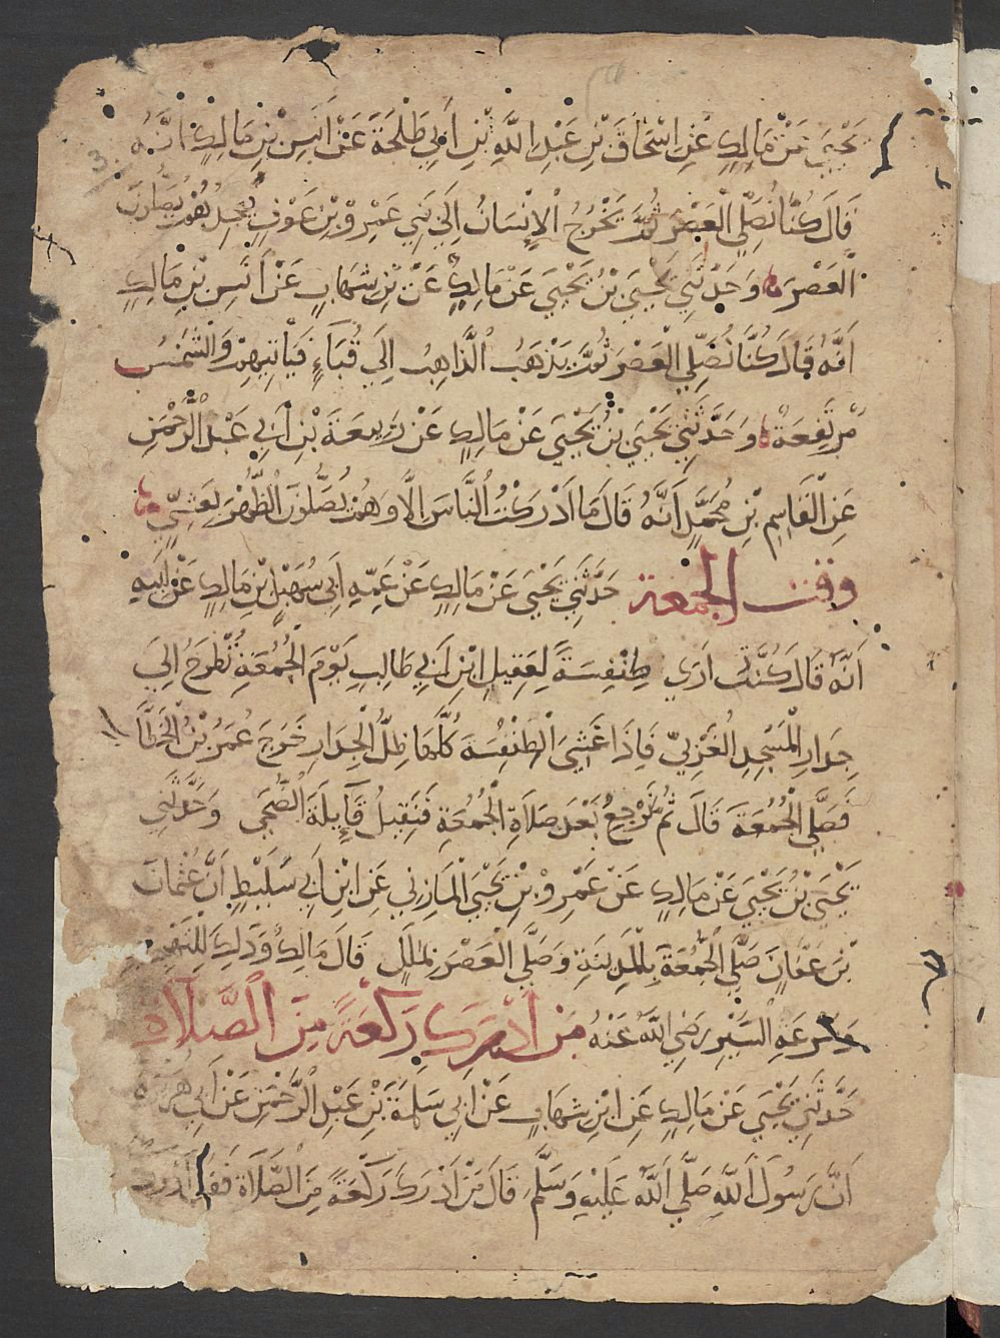 يَحْيَى عَنْ مَالِكٍ عَنِ اسْحَاقَ بْنِ عَبْدِ اللَّهِ بْنِ أَبِي طَلْحَةَ عَنْ أَنَسِ بْنِ مَالِكٍ أَنَّهُ
قَالَ كُنَّا نُصَلِّي الْعَصْرَ ثُمَّ يَخْرُجُ الْإِنْسَانُ إِلَى بَنِي عَمْرِو بْنِ عَوْفٍ يُصَلُّونَ
الْعَصْرَ وَحَدَّثَنِي يَحْيَى بْنُ يَحْيَى عَنْ مَالِكٍ عَنْ بْنِ شِهَابٍ عَنْ أَنَسِ بْنِ مَالِكٍ
أَنَّهُ قَالَ كُنَّا نُصَلِّي الْعَصْرَ ثُمَّ يَذْهَبُ الذَّاهِبُ إِلَى قُبَاءٍ فَيَأْتِيهِمْ وَالشَّمْسُ
مُرْتَفِعَةٌ وَحَدَّثَنِي يَحْيَى بْنُ يَحْيَى عَنْ مَالِكٍ عَنْ رَبِيعَةَ بْنِ أَبِي عَبْدِ الرَّحْمَنِ
عَنِ الْقَاسِمِ بْنِ مُحَمَّدٍ أَنَّهُ قَالَ مَا أَدْرَكْتُ النَّاسَ إِلَّا وَهُمْ يُصَلُّونَ الظُّهْرَ بِعَشِيٍّ
وقت الجمعة حَدَّثَنِي يَحْيَى عَنْ مَالِكٍ عَنْ عَمِّهِ أَبِي سُهَيْلِ بْنِ مَالِكٍ عَنْ أَبِيهِ
أَنَّهُ قَالَ كُنْتُ أَرَى طِنْفِسَةً لِعَقِيلِ ابْنِ أَبِي طَالِبٍ يَوْمَ الْجُمُعَةِ تُطْرَحُ إِلَى
جِدَارِ الْمَسْجِدِ الْغَرْبِيِّ فَإِذَا غَشِيَ الطِّنْفِسَةَ كُلَّهَا ظِلُّ الْجِدَارِ خَرَجَ عُمَرُ بْنُ الْخَطَّا
فَصَلَّى الْجُمُعَةَ قَالَ ثُمَّ نَرْجِعُ بَعْدَ صَلَاةِ الْجُمُعَةِ فَنَقِيلُ قَايِلَةَ الضُّحَى وَحَدَّثَنِي
يَحْيَى بْنُ يَحْيَى عَنْ مَالِكٍ عَنْ عَمْرِو بْنِ يَحْيَى الْمَازِنِي عَنِ ابْنِ أَبِي سَلِيطٍ أَنَّ عُثْمَانَ
بْنَ عَفَّانَ صَلَّى الْجُمُعَةَ بِالْمَدِينَةِ وَصَلَّى الْعَصْرَ بِمَلَلٍ قَالَ مَالِكٌ وَذَلِكَ لِلتَّهْجِيرِ
وَسُرْعَةِ السَّيْرِ رَضِيَ اللَّهُ عَنْهُ مَنْ أَدْرَكَ رَكْعَةً مِنَ الصَّلَاةِ
حَدَّثَنِي يَحْيَى عَنْ مَالِكٍ عَنِ ابْنِ شِهَابٍ عَنْ أَبِي سَلَمَةَ بْنِ عَبْدِ الرَّحْمَنِ عَنْ أَبِي هُرَيْرَةَ
أَنَّ رَسُولَ اللَّهِ صَلَّى اللَّهُ عَلَيْهِ وَسَلَّمَ قَالَ مَنْ أَدْرَكَ رَكْعَةً مِنَ الصَّلَاةِ فَقَدْ أَدْرَكَ